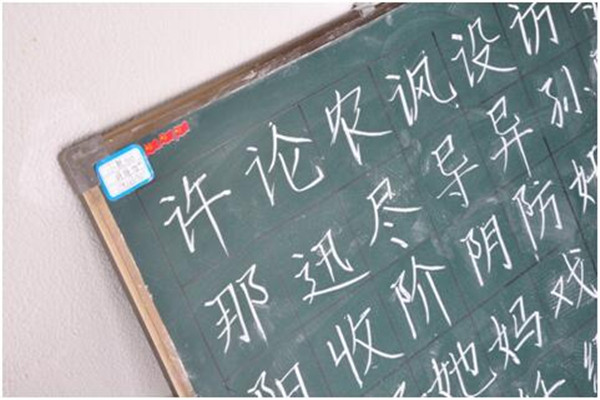 许论农讽设访
那迅尽导异孙
阳收阶阴防奸
她妈戏